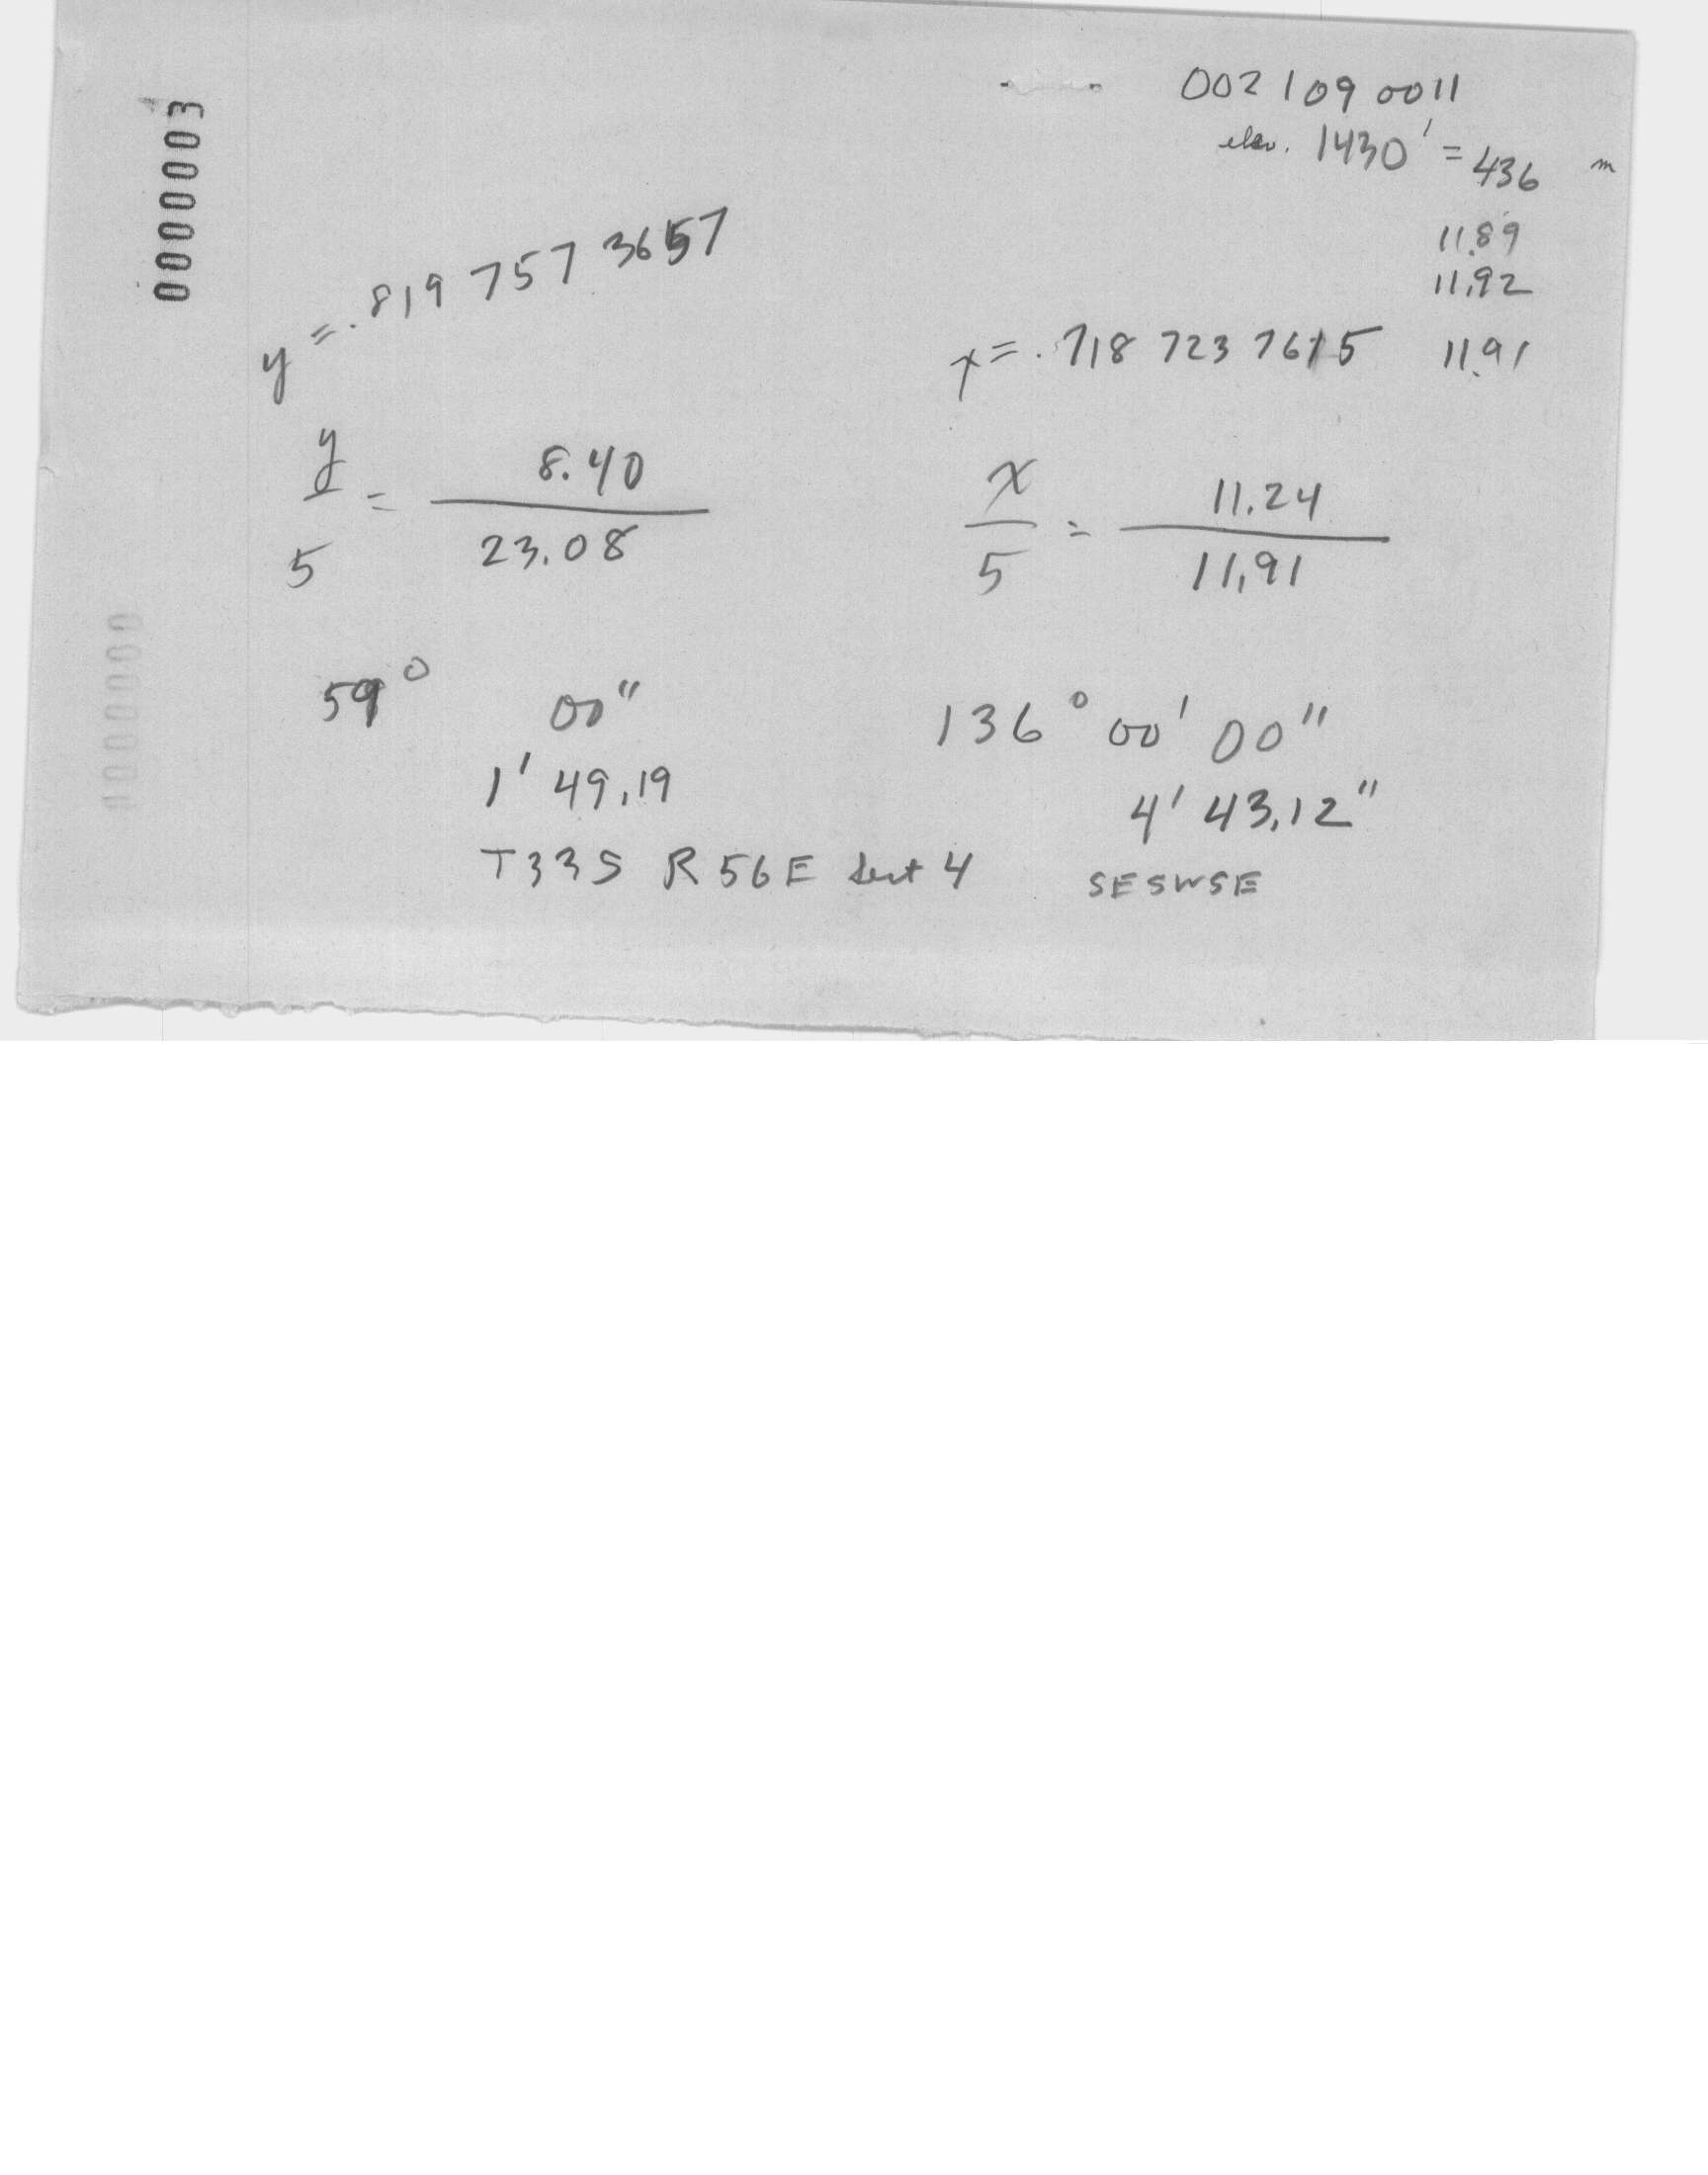 0000003
002 109 0011
elev. 1430' = 436 m
11.89
11.92
y = .819 757 3657
x = .718 723 7615 11.91
y/5 = 8.40/23.08
x/5 = 11.24/11.91
59° 00"
136° 00' 00"
1' 49.19
4' 43.12"
T33S R56E Sect 4 SESWSE